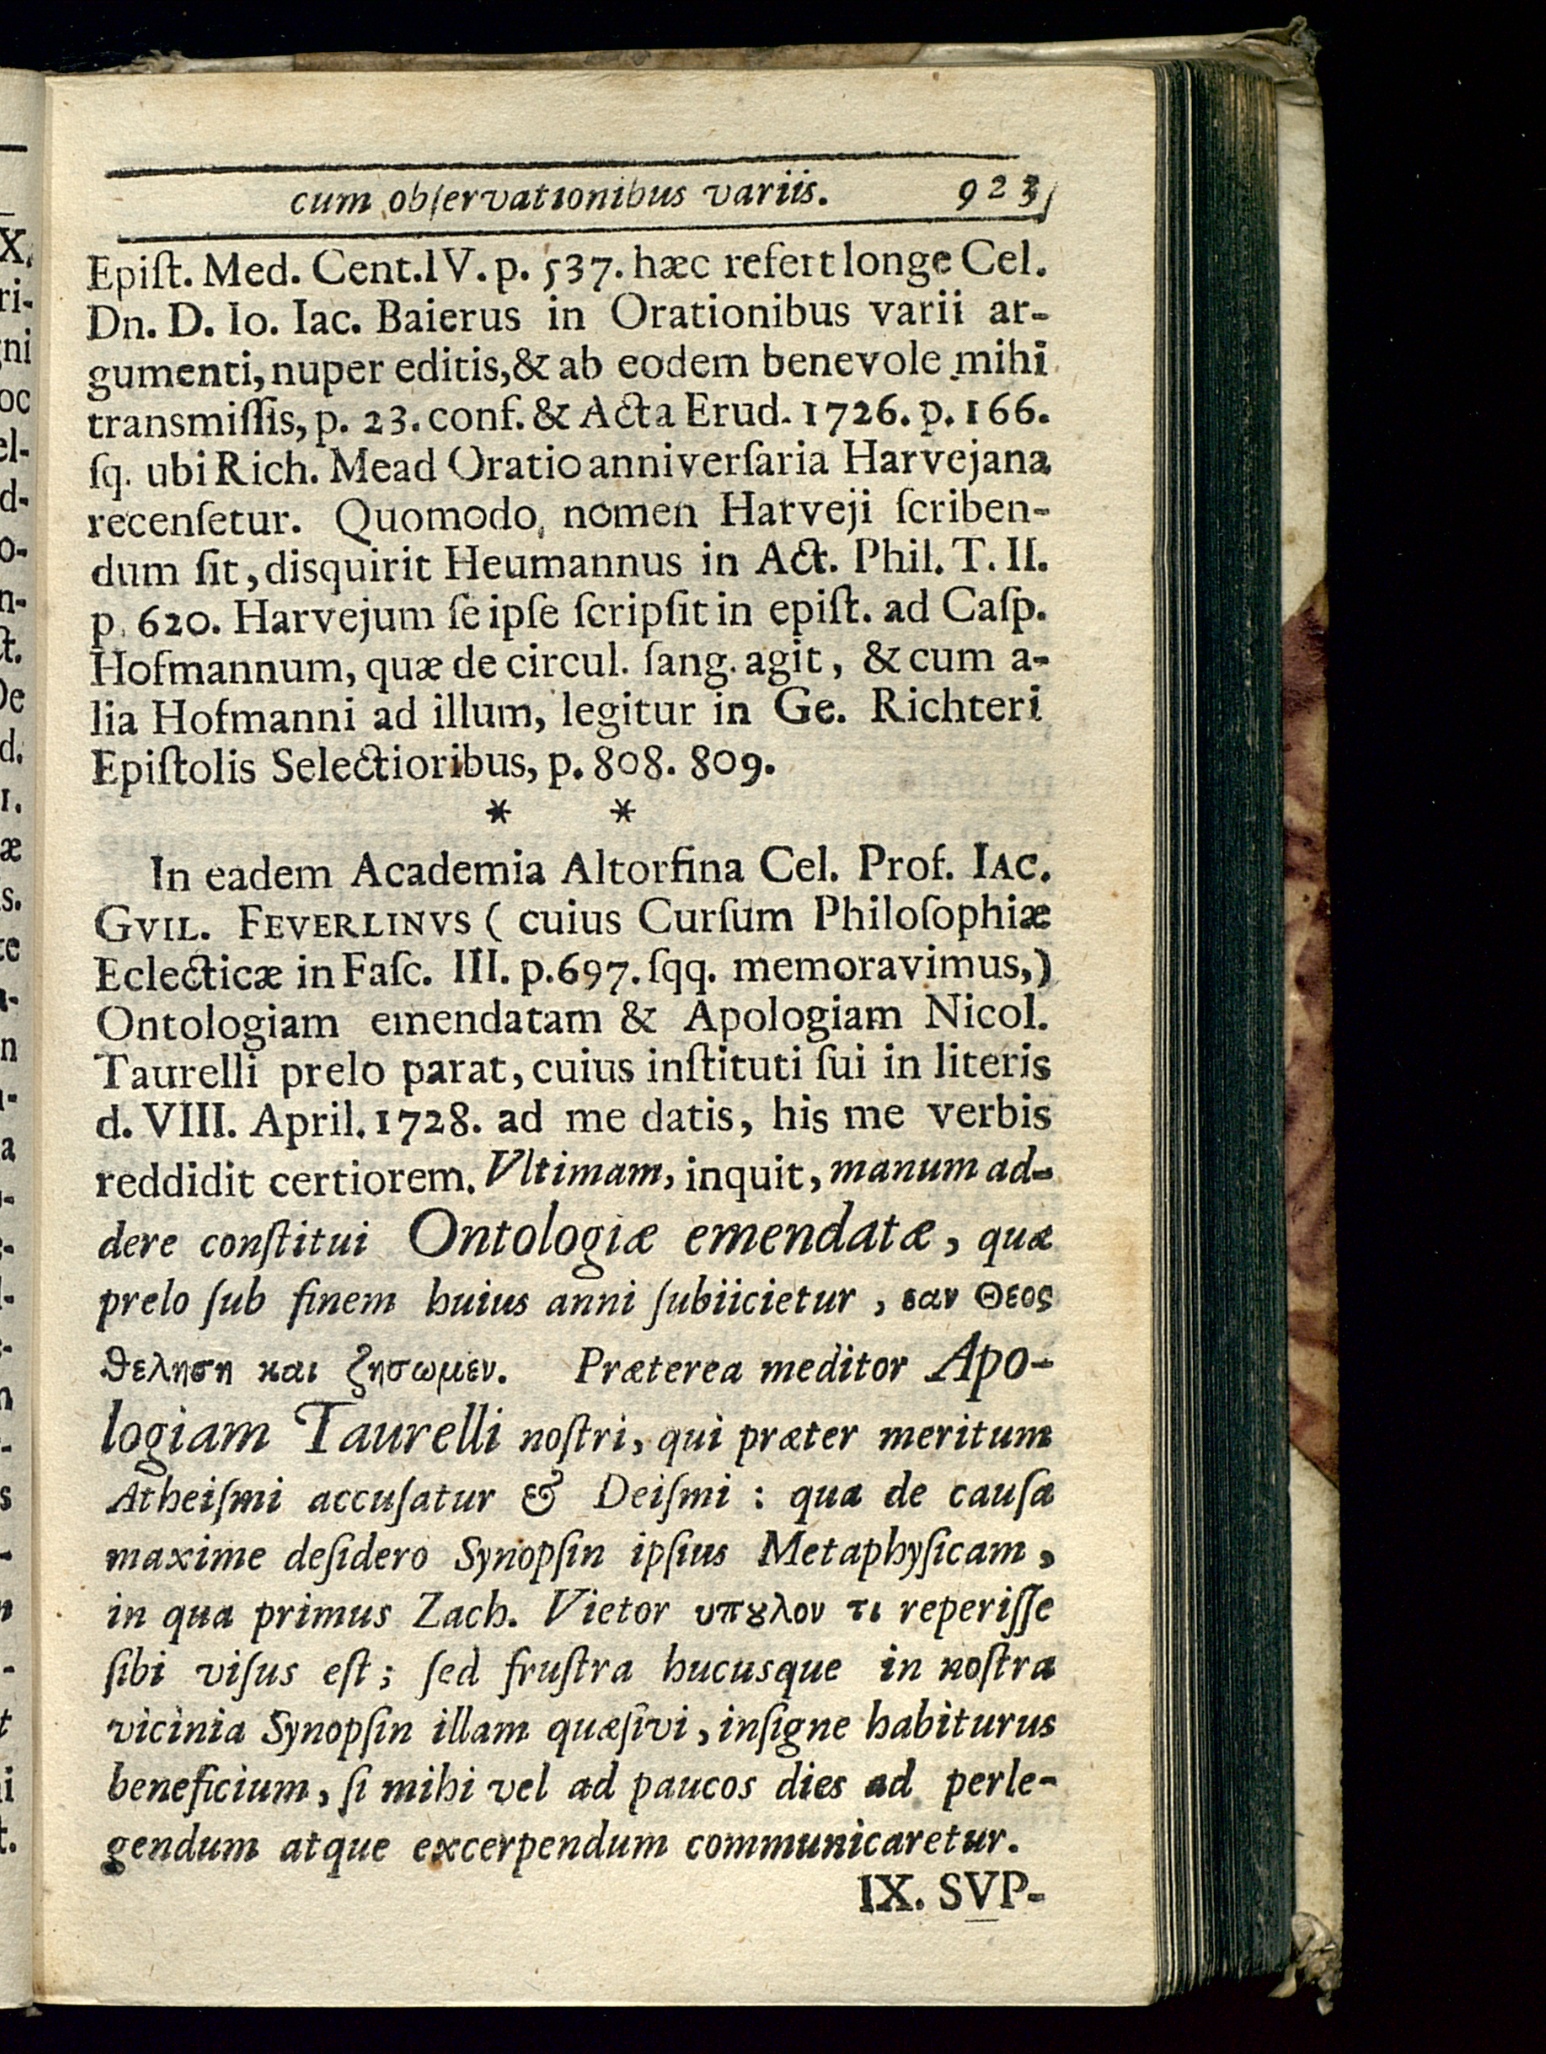 cum observationibus variis. 923
Epiſt. Med. Cent. IV. p. 537. hæc refert longe Cel.
Dn. D. Io. Iac. Baierus in Orationibus varii ar-
gumenti, nuper editis, & ab eodem benevole mihi
transmiſſis, p. 23. conf. & Acta Erud. 1726. p. 166.
ſq. ubi Rich. Mead Oratio anniverſaria Harvejana
recenſetur. Quomodo nomen Harveji ſcriben-
dum ſit, disquirit Heumannus in Act. Phil. T. II.
p. 620. Harvejum ſe ipſe ſcripſit in epiſt. ad Caſp.
Hofmannum, quæ de circul. ſang. agit, & cum a-
lia Hofmanni ad illum, legitur in Ge. Richteri
Epiſtolis Selectioribus, p. 808. 809.
* *
In eadem Academia Altorfina Cel. Prof. IAC.
GVIL. FEVERLINVS ( cuius Curſum Philoſophiæ
Eclecticæ in Faſc. III. p. 697. ſqq. memoravimus,)
Ontologiam emendatam & Apologiam Nicol.
Taurelli prelo parat, cuius inſtituti ſui in literis
d. VIII. April. 1728. ad me datis, his me verbis
reddidit certiorem. Vltimam, inquit, manum ad-
dere conſtitui Ontologiæ emendatæ, quæ
prelo ſub finem huius anni ſubiicietur, εαν Θεος
θεληση και ζησωμεν. Præterea meditor Apo-
logiam Taurelli noſtri, qui præter meritum
Atheiſmi accuſatur & Deiſmi : qua de cauſa
maxime deſidero Synopſin ipſius Metaphyſicam,
in qua primus Zach. Vietor υπȣλον τι reperiſſe
ſibi viſus eſt; ſed fruſtra hucusque in noſtra
vicinia Synopſin illam quæſivi, inſigne habiturus
beneficium, ſi mihi vel ad paucos dies ad perle-
gendum atque excerpendum communicaretur.
IX. SVP-